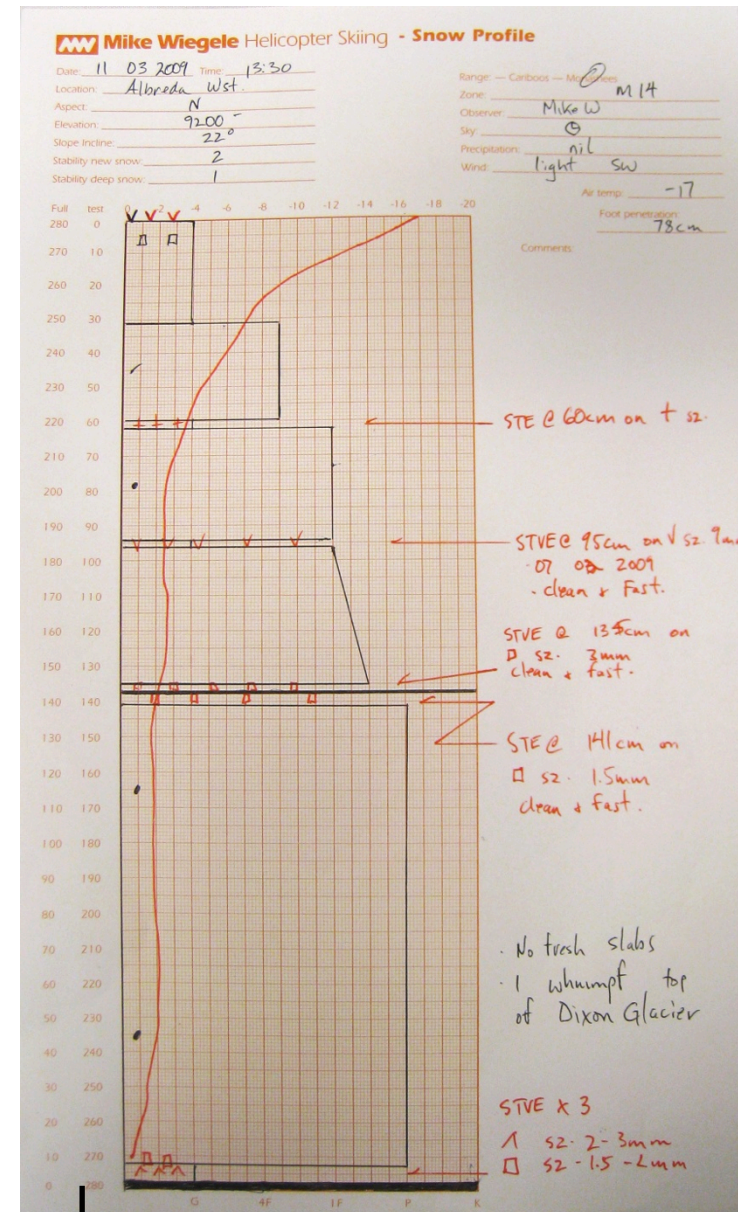 Mike Wiegele Helicopter Skiing - Snow Profile
Date: 11 03 2009 Time: 13:30
Location: Albreda Wst.
Aspect: N
Elevation: 9200
Slope Incline: 22°
Stability new snow: 2
Stability deep snow: 1
Range: — Cariboos — Monashees
Zone: M14
Observer: Mike W
Sky:
Precipitation: nil
Wind: light SW
Air temp: -17
Foot penetration: 78cm
Comments:
Full test 0 -2 -4 -6 -8 -10 -12 -14 -16 -18 -20
280 0
270 10
260 20
250 30
240 40
230 50
220 60
210 70
200 80
190 90
180 100
170 110
160 120
150 130
140 140
130 150
120 160
110 170
100 180
90 190
80 200
70 210
60 220
50 230
40 240
30 250
20 260
10 270
0 280
G 4F 1F P K
STE @ 60cm on + sz.
STVE @ 95cm on V sz. 9mm
07 03 2009
- clean & Fast.
STVE @ 135cm on
□ sz. 3mm
clean & fast.
STE @ 141cm on
□ sz. 1.5mm
clean & fast.
· No fresh slabs
· 1 whumpf top
of Dixon Glacier
STVE x 3
Λ sz. 2-3mm
□ sz - 1.5 - 2mm